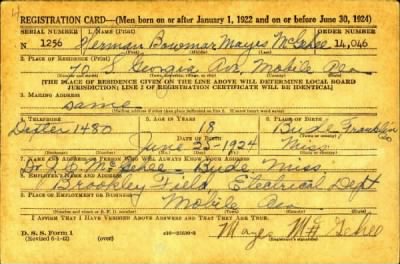 4
REGISTRATION CARD—(Men born on or after January 1, 1922 and on or before June 30, 1924)
SERIAL NUMBER 1. NAME (Print) ORDER NUMBER
N 1256 Herman Bowmar Mayes McGehee 14,046
2. PLACE OF RESIDENCE (Print)
70 S Georgia Ave Mobile Ala
[THE PLACE OF RESIDENCE GIVEN ON THE LINE ABOVE WILL DETERMINE LOCAL BOARD
JURISDICTION; LINE 2 OF REGISTRATION CERTIFICATE WILL BE IDENTICAL]
3. MAILING ADDRESS
same
4. TELEPHONE 5. AGE IN YEARS 6. PLACE OF BIRTH
Dexter 1480 18 Bude Franklin
DATE OF BIRTH
June 25 1924 Miss.
7. NAME AND ADDRESS OF PERSON WHO WILL ALWAYS KNOW YOUR ADDRESS
Dr. McGehee - Bude, Miss.
8. EMPLOYER'S NAME AND ADDRESS
Brookley Field, Electrical Dept
9. PLACE OF EMPLOYMENT OR BUSINESS
Mobile Ala
I AFFIRM THAT I HAVE VERIFIED ABOVE ANSWERS AND THAT THEY ARE TRUE.
D. S. S. Form 1
(Revised 6-1-42) (over) Mayes McGehee